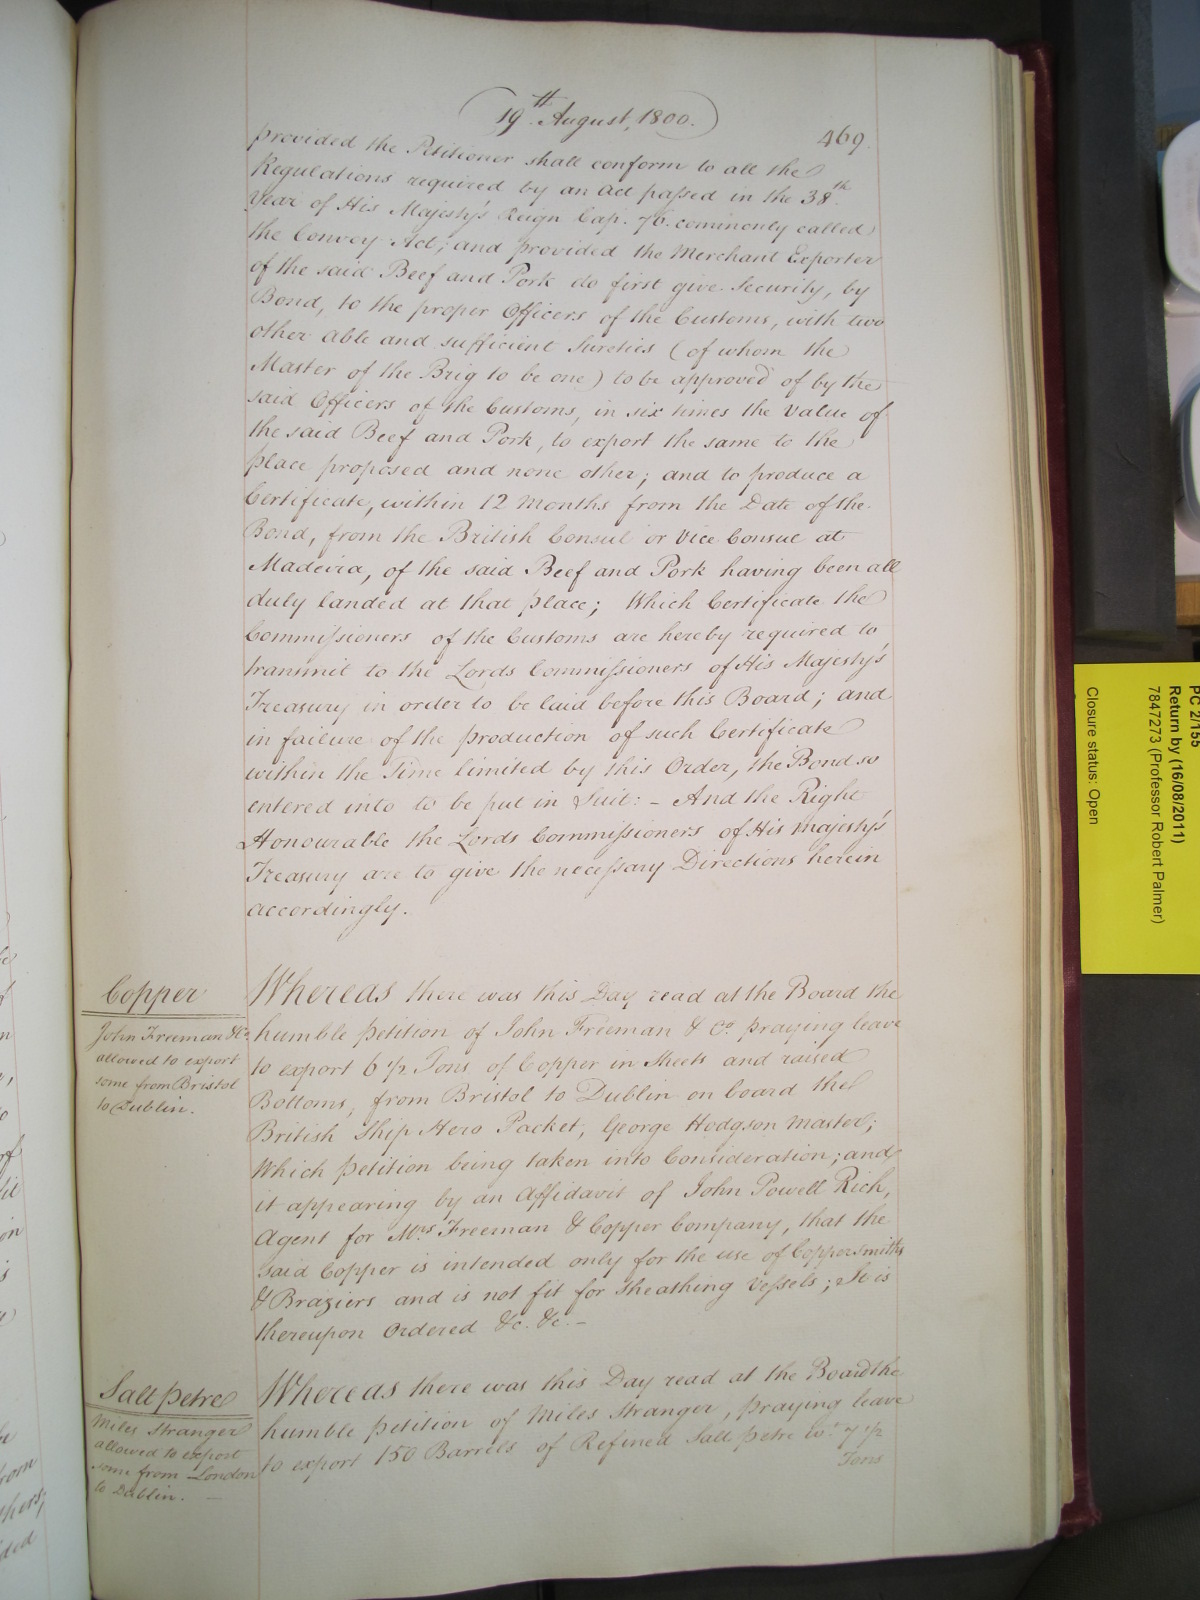 19th August, 1800.
469.
provided the Petitioner shall conform to all the
Regulations required by an Act passed in the 38th
Year of His Majesty's Reign Cap. 76. commonly called
the Convoy Act; and provided the Merchant Exporter
of the said Beef and Pork do first give Security, by
Bond, to the proper Officers of the Customs, with two
other able and sufficient Sureties (of whom the
Master of the Brig to be one) to be approved of by the
said Officers of the Customs, in six times the Value of
the said Beef and Pork, to export the same to the
place proposed and none other; and to produce a
Certificate, within 12 Months from the Date of the
Bond, from the British Consul or Vice Consul at
Madeira, of the said Beef and Pork having been all
duly landed at that place; Which Certificate the
Commissioners of the Customs are hereby required to
transmit to the Lords Commissioners of His Majesty's
Treasury in order to be laid before this Board; and
in failure of the production of such Certificate
within the Time limited by this Order, the Bond so
entered into to be put in Suit: - And the Right
Honourable the Lords Commissioners of His Majesty's
Treasury are to give the necessary Directions herein
accordingly.
Copper
John Freeman & Co.
allowed to export
some from Bristol
to Dublin.
Whereas there was this Day read at the Board the
humble petition of John Freeman & Co. praying leave
to export 6 1/2 Tons of Copper in Sheets and raised
Bottoms, from Bristol to Dublin on board the
British Ship Hero Packet, George Hodgson Master;
Which petition being taken into Consideration; and
it appearing by an Affidavit of John Powell Rich,
Agent for Mrs Freeman & Copper Company, that the
said Copper is intended only for the use of Coppersmiths
& Braziers and is not fit for Sheathing Vessels; It is
thereupon Ordered &c. &c. -
Salt petre
Miles Stranger
allowed to export
some from London
to Dublin. -
Whereas there was this Day read at the Board the
humble petition of Miles Stranger, praying leave
to export 150 Barrels of Refined Salt petre wt. 7 1/2
Tons
PC 2/155
Return by (16/08/2011)
7847273 (Professor Robert Palmer)
Closure status: Open